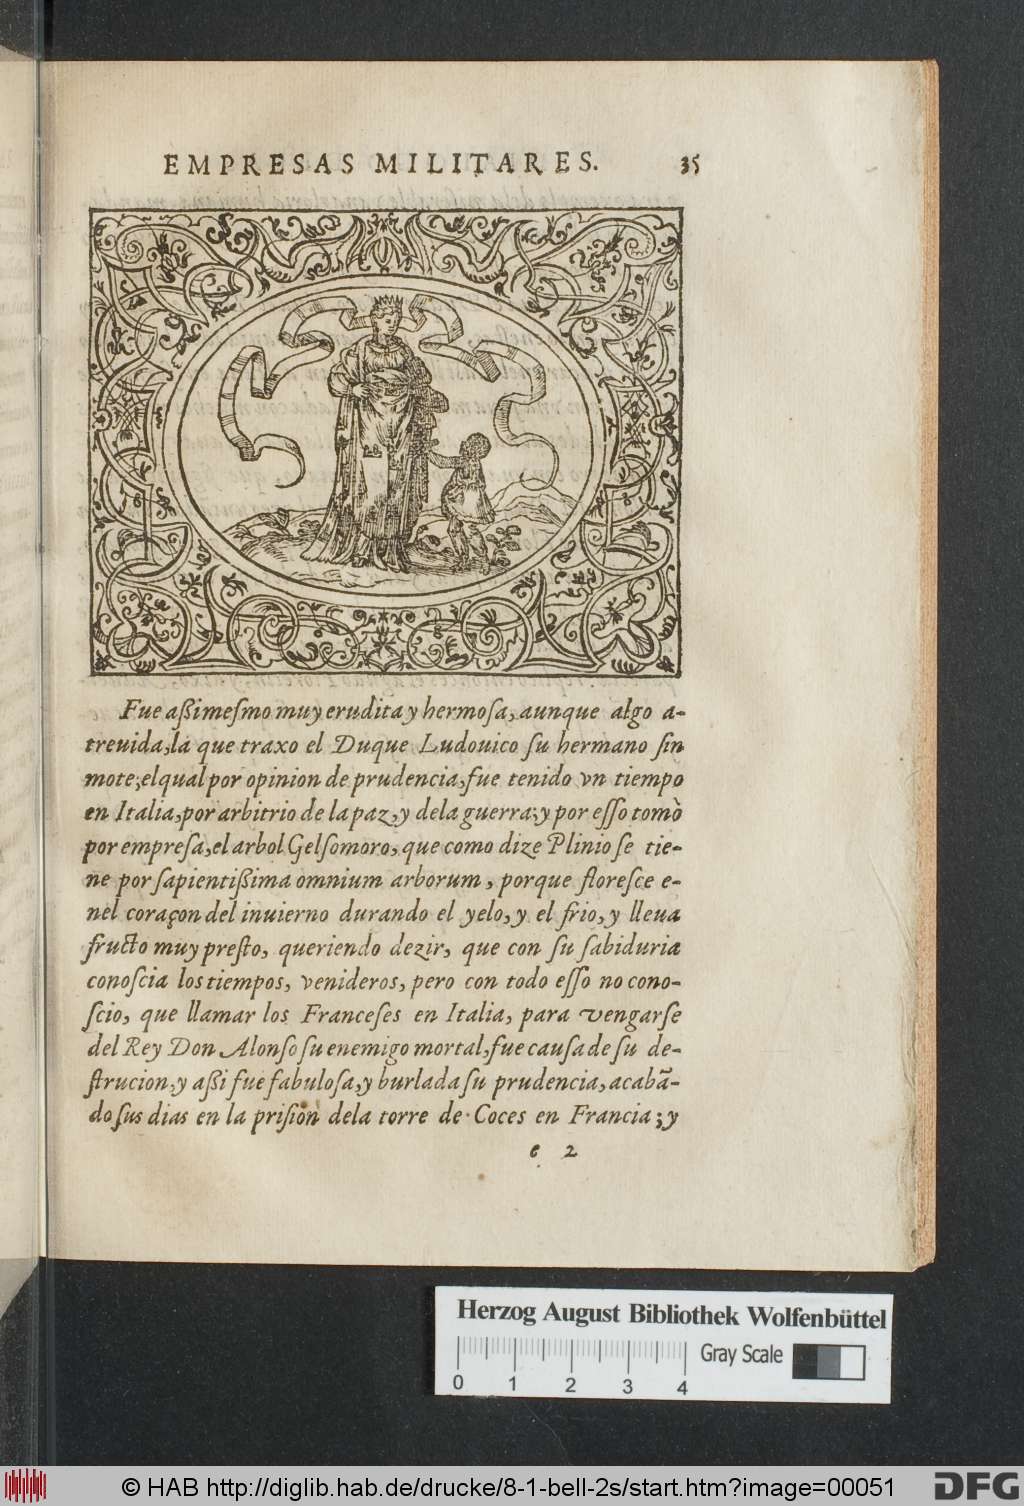 EMPRESAS MILITARES. 35
Fue aßimeſmo muy erudita y hermoſa, aunque algo a-
treuida, la que traxo el Duque Ludouico ſu hermano ſin
mote; elqual por opinion de prudencia, fue tenido vn tiempo
en Italia, por arbitrio de la paz, y dela guerra; y por eſſo tomò
por empreſa, el arbol Gelſomoro, que como dize Plinio ſe tie-
ne por ſapientißima omnium arborum, porque floreſce e-
nel coraçon del inuierno durando el yelo, y el frio, y lleua
fructo muy preſto, queriendo dezir, que con ſu ſabiduria
conoſcia los tiempos, venideros, pero con todo eſſo no cono-
ſcio, que llamar los Franceſes en Italia, para vengarſe
del Rey Don Alonſo ſu enemigo mortal, fue cauſa de ſu de-
ſtrucion, y aßi fue fabuloſa, y burlada ſu prudencia, acabã-
do ſus dias en la priſion dela torre de Coces en Francia; y
e 2
Herzog August Bibliothek Wolfenbüttel
Gray Scale
0 1 2 3 4
© HAB http://diglib.hab.de/drucke/8-1-bell-2s/start.htm?image=00051
DFG